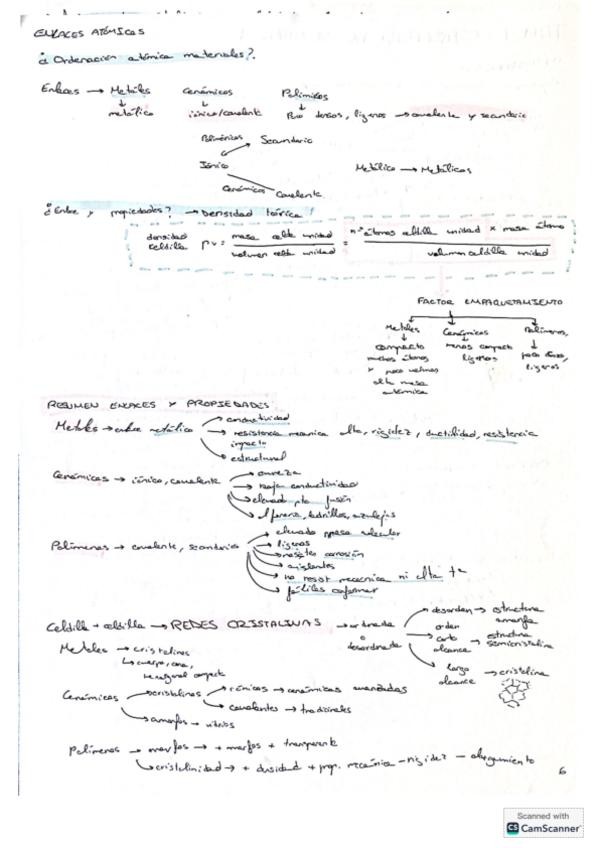 ENLACES ATÓMICOS
¿Ordenación atómica materiales?.
Enlaces → Metales Cerámicos Poliméricos
metálico iónico/covalente Poco densos, ligeros → covalente y secundario
Poliméricos Secundario
Iónico Metálico → Metálicos
Cerámicos Covalente
¿Enlace y propiedades? → Densidad teórica!
densidad celdilla ρv = masa celda unidad / volumen celda unidad = nº átomos celdilla unidad × masa átomo / volumen celdilla unidad
FACTOR EMPAQUETAMIENTO
Metales Cerámicos Polímeros,
compacto menos compacto poco densos,
muchos átomos ligeros ligeros
y poco volumen
alta masa
atómica
RESUMEN ENLACES Y PROPIEDADES
conductividad
Metales → enlace metálico → resistencia mecánica alta, rigidez, ductilidad, resistencia
impacto
estructural
dureza
Cerámicos → iónico, covalente → baja conductividad
elevado pto fusión
ladrillos, azulejos
elevada masa molecular
Polímeros → covalente, secundario → ligeros
resisten corrosión
aislantes
no resist mecánica ni alta tª
fáciles conformar
Celdilla + celdilla → REDES CRISTALINAS → ordenada o desordenada
desorden → estructura amorfa
orden corto alcance → estructura semicristalina
largo alcance → cristalina
Metales → cristalinos
cuerpo, cara,
hexagonal compacta
Cerámicos → cristalinos → iónicos → cerámicas avanzadas
covalentes → tradicionales
amorfos → vidrios
Polímeros → amorfos → + amorfos + transparente
cristalinidad → + densidad + prop. mecánica - rigidez - alargamiento
6
Scanned with
CS CamScanner